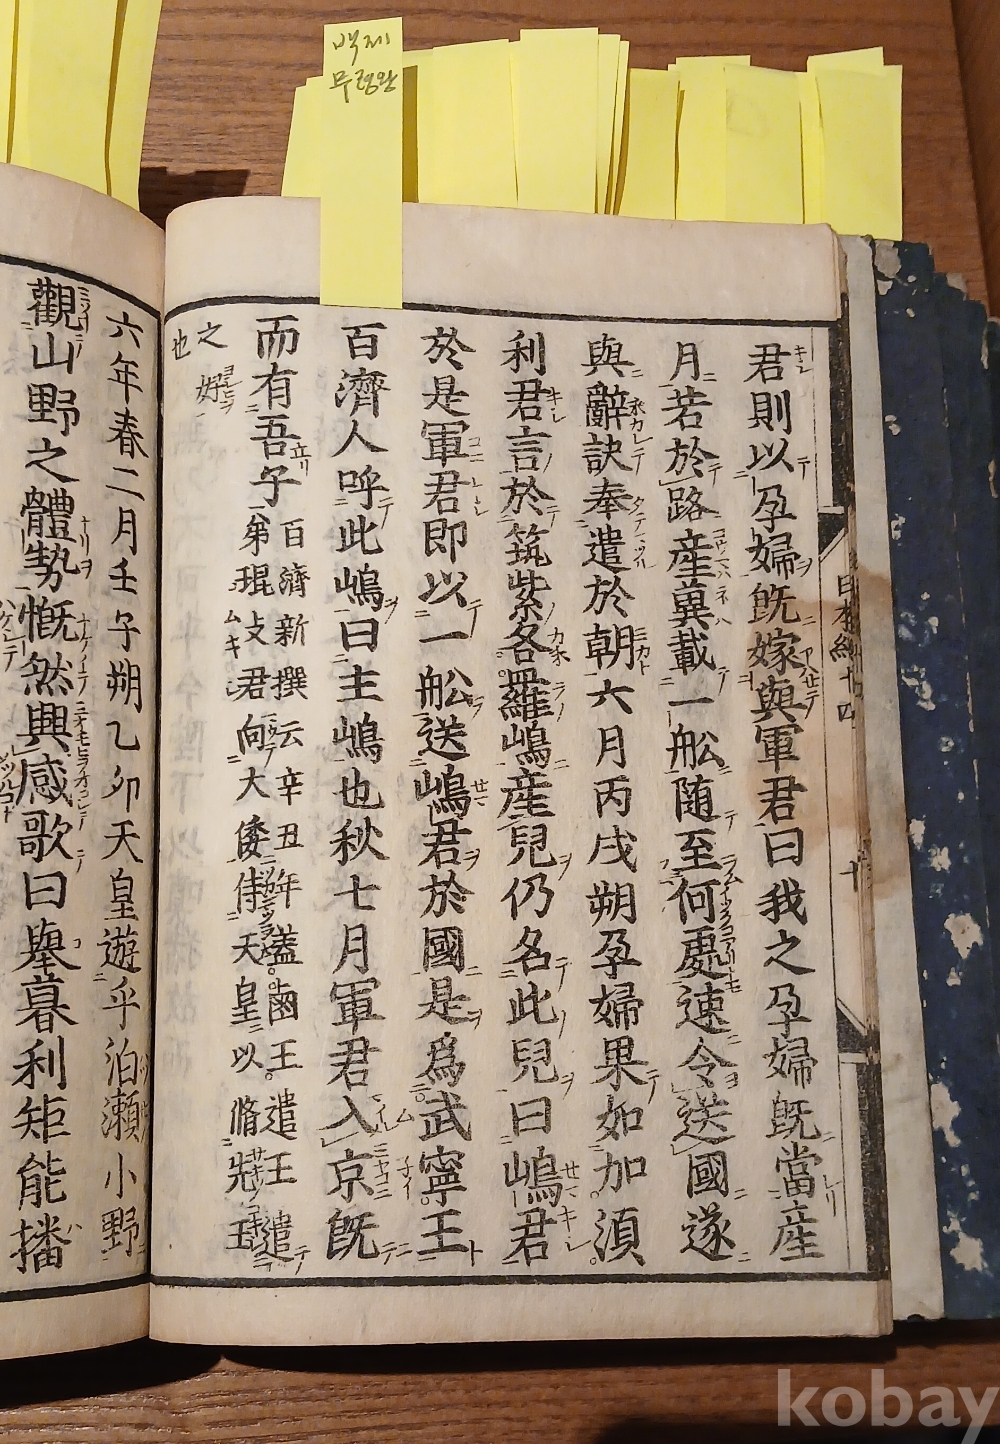 백제
무령왕
君則以孕婦既嫁與軍君曰我之孕婦既當產
月若於路產冀載一舩随至何處速令送國遂
與辭訣奉遣於朝六月丙戌朔孕婦果如加須
利君言於筑紫各羅嶋產兒仍名此兒曰嶋君
於是軍君即以一舩送嶋君於國是為武寧王
百濟人呼此嶋曰主嶋也秋七月軍君入京既
而有吾子
百濟新撰云辛丑年蓋鹵王遣王遣
弟琨攴君向大倭侍天皇以脩兄王
之好
也
六年春二月壬子朔乙卯天皇遊乎泊瀨小野
觀山野之體勢慨然興感歌曰舉暮利矩能播
日本紀十四
十
kobay